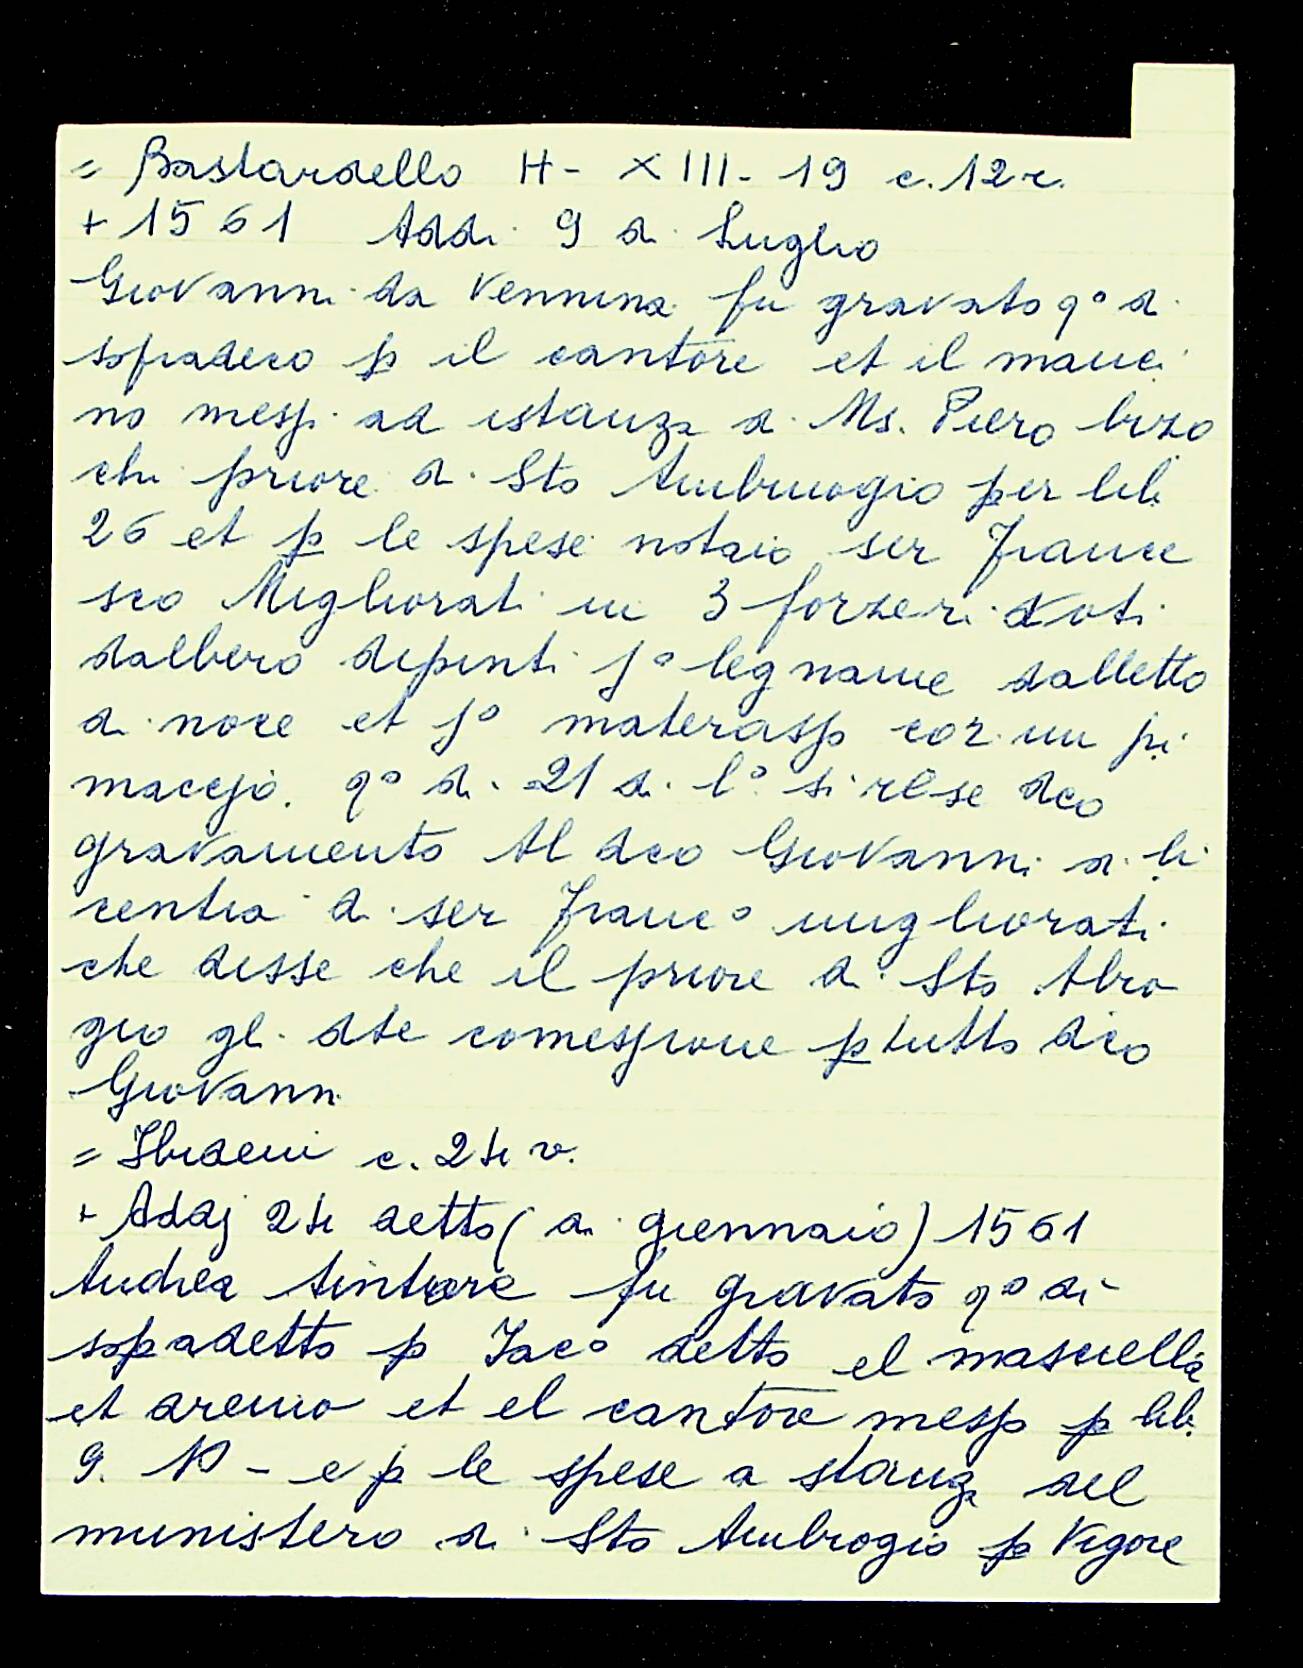 = Bastardello H - XIII - 19 c. 12 r.
+ 1561 Addi 9 di Luglio
Giovanni da Vernina fu gravato qº di
sopradeco p il cantore et il manci
no mesj ad istanza di Ms. Piero brzo
chi priore di Sto Ambruogio per lib.
26 et p le spese notaio ser France
sco Migliorati in 3 forzeri voti
dalbero dipinti jº legname dalletto
di noce et jº materasso con un pi
maccjo. qº di 21 di lº si rese dco
gravamento Al dco Giovanni di li
centia di ser Francº migliorati
che disse che il priore di Sto Abro
gio gl. dte comessione p tutto dco
Giovanni
= Ibidem c. 24 v.
+ Addj 24 detto (di giennaio) 1561
Andrea tintore fu gravato qº di
sopadetto p Jacº detto el mascella
et aremo et el cantore messo p lib.
9. 10 - e p le spese a stanza del
munistero di Sto Ambrogio p Vigore